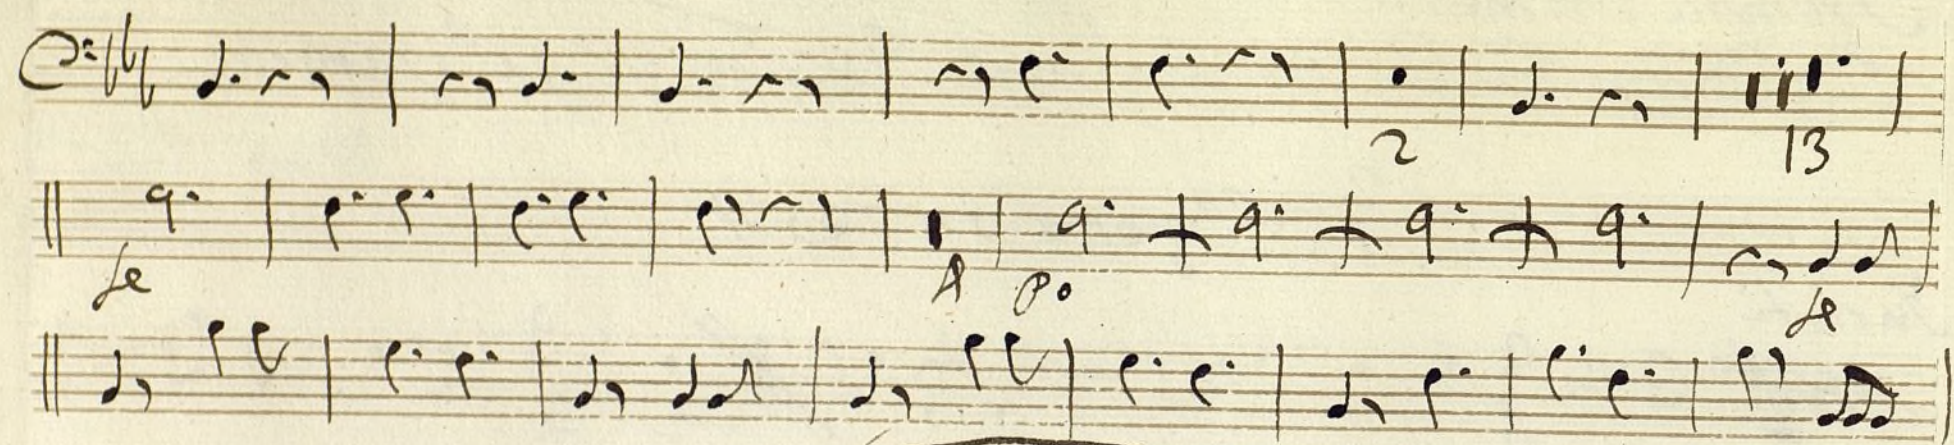 2 13
Fe A Po Fe